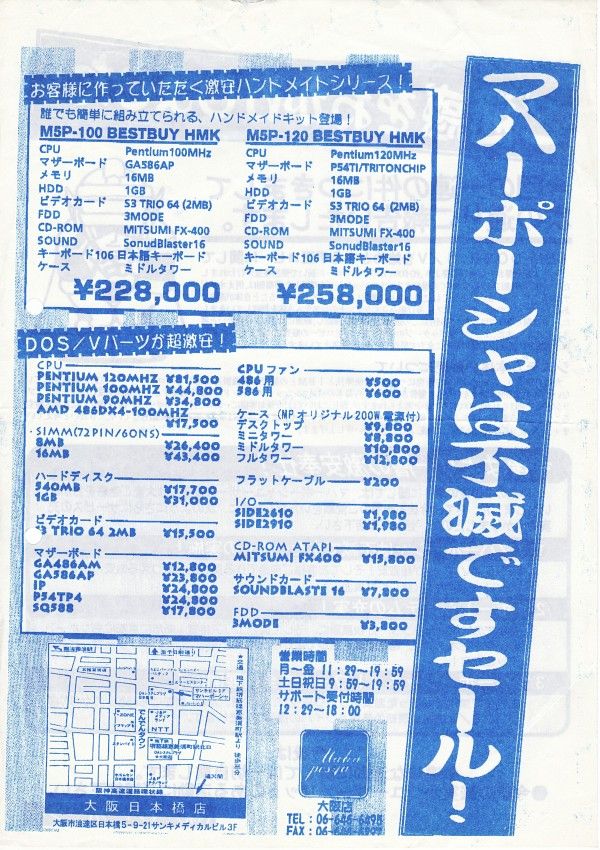 マハーポーシャは不滅ですセール!
お客様に作っていただく激安ハンドメイドシリーズ!
誰でも簡単に組み立てられる、ハンドメイドキット登場!
M5P-100 BESTBUY HMK
CPU Pentium100MHz
マザーボード GA586AP
メモリ 16MB
HDD 1GB
ビデオカード S3 TRIO 64 (2MB)
FDD 3MODE
CD-ROM MITSUMI FX-400
SOUND SonudBlaster16
キーボード106日本語キーボード
ケース ミドルタワー
¥228,000
M5P-120 BESTBUY HMK
CPU Pentium120MHz
マザーボード P54TI/TRITONCHIP
メモリ 16MB
HDD 1GB
ビデオカード S3 TRIO 64 (2MB)
FDD 3MODE
CD-ROM MITSUMI FX-400
SOUND SonudBlaster16
キーボード106日本語キーボード
ケース ミドルタワー
¥258,000
DOS/Vパーツが超激安!
CPU
PENTIUM 120MHZ ¥81,500
PENTIUM 100MHZ ¥44,800
PENTIUM 90MHZ ¥34,800
AMD 486DX4-100MHZ
¥17,500
SIMM(72PIN/60NS)
8MB ¥26,400
16MB ¥43,400
ハードディスク
540MB ¥17,700
1GB ¥31,000
ビデオカード
S3 TRIO 64 2MB ¥15,500
マザーボード
GA486AM ¥12,800
GA586AP ¥23,800
IP ¥24,800
P54TP4 ¥24,800
SQ588 ¥17,800
CPUファン
486用 ¥500
586用 ¥600
ケース(MPオリジナル200W電源付)
デスクトップ ¥9,800
ミニタワー ¥8,800
ミドルタワー ¥10,800
フルタワー ¥12,800
フラットケーブル ¥200
I/O
SIDE2610 ¥1,980
SIDE2910 ¥1,980
CD-ROM ATAPI
MITSUMI FX400 ¥15,800
サウンドカード
SOUNDBLASTE 16 ¥7,800
FDD
3MODE ¥3,800
でんでんタウン
NTT
阪神高速道路環状線
大阪日本橋店
大阪市浪速区日本橋5-9-21サンキメディカルビル3F
営業時間
月~金 11:29~19:59
土日祝日9:59~19:59
サポート受付時間
12:29~18:00
Maha
posya
大阪店
TEL: 06-646-6495
FAX: 06-646-